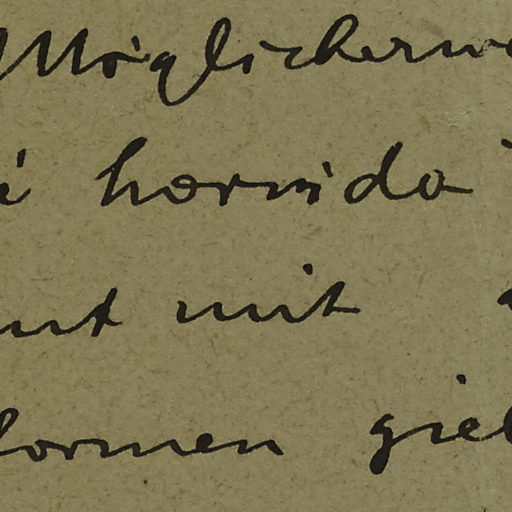 Möglicherwe
i horrida
nt mit
formen gieb